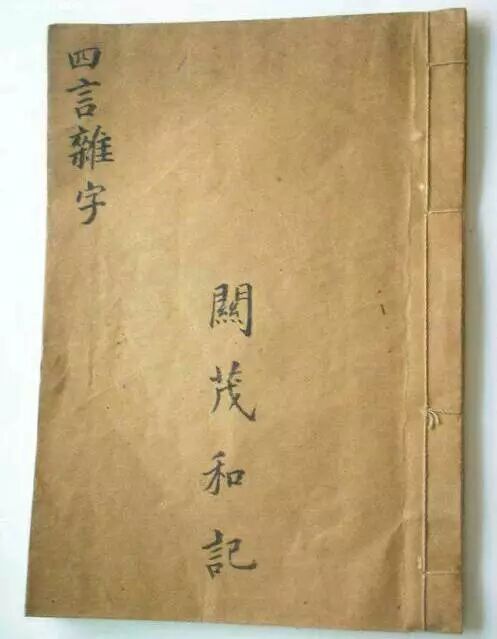 四言雜字
關茂和記